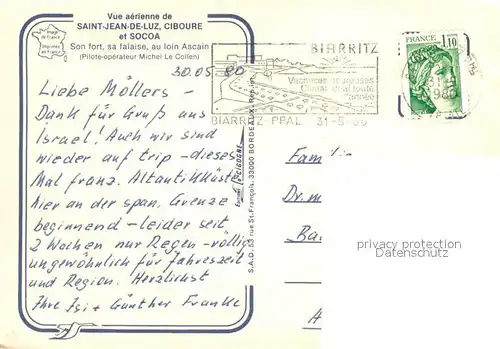 Vue aérienne de
SAINT-JEAN-DE-LUZ, CIBOURE
et SOCOA
Son fort, sa falaise, au loin Ascain
(Pilote-opérateur Michel Le Collen)
Image de France
Imprimée en France
30.05.80
Liebe Möllers -
Dank für Gruß aus
Israel! Auch wir sind
wieder auf trip - dieses
Mal franz. Atlantikküste
hier an der span. Grenze
beginnend - leider seit
2 Wochen nur Regen - völlig
ungewöhnlich für Jahreszeit
und Region. Herzlichst
Ihre Isi + Günther Franke
S.A.D. 63 rue St-François, 33000 BORDEAUX
BIARRITZ
Vacances heureuses
Climat idéal toute
l'année
BIARRITZ PPAL 31-5
FRANCE
1,10
Fam
Dr. m
Ba
A
privacy protection
Datenschutz